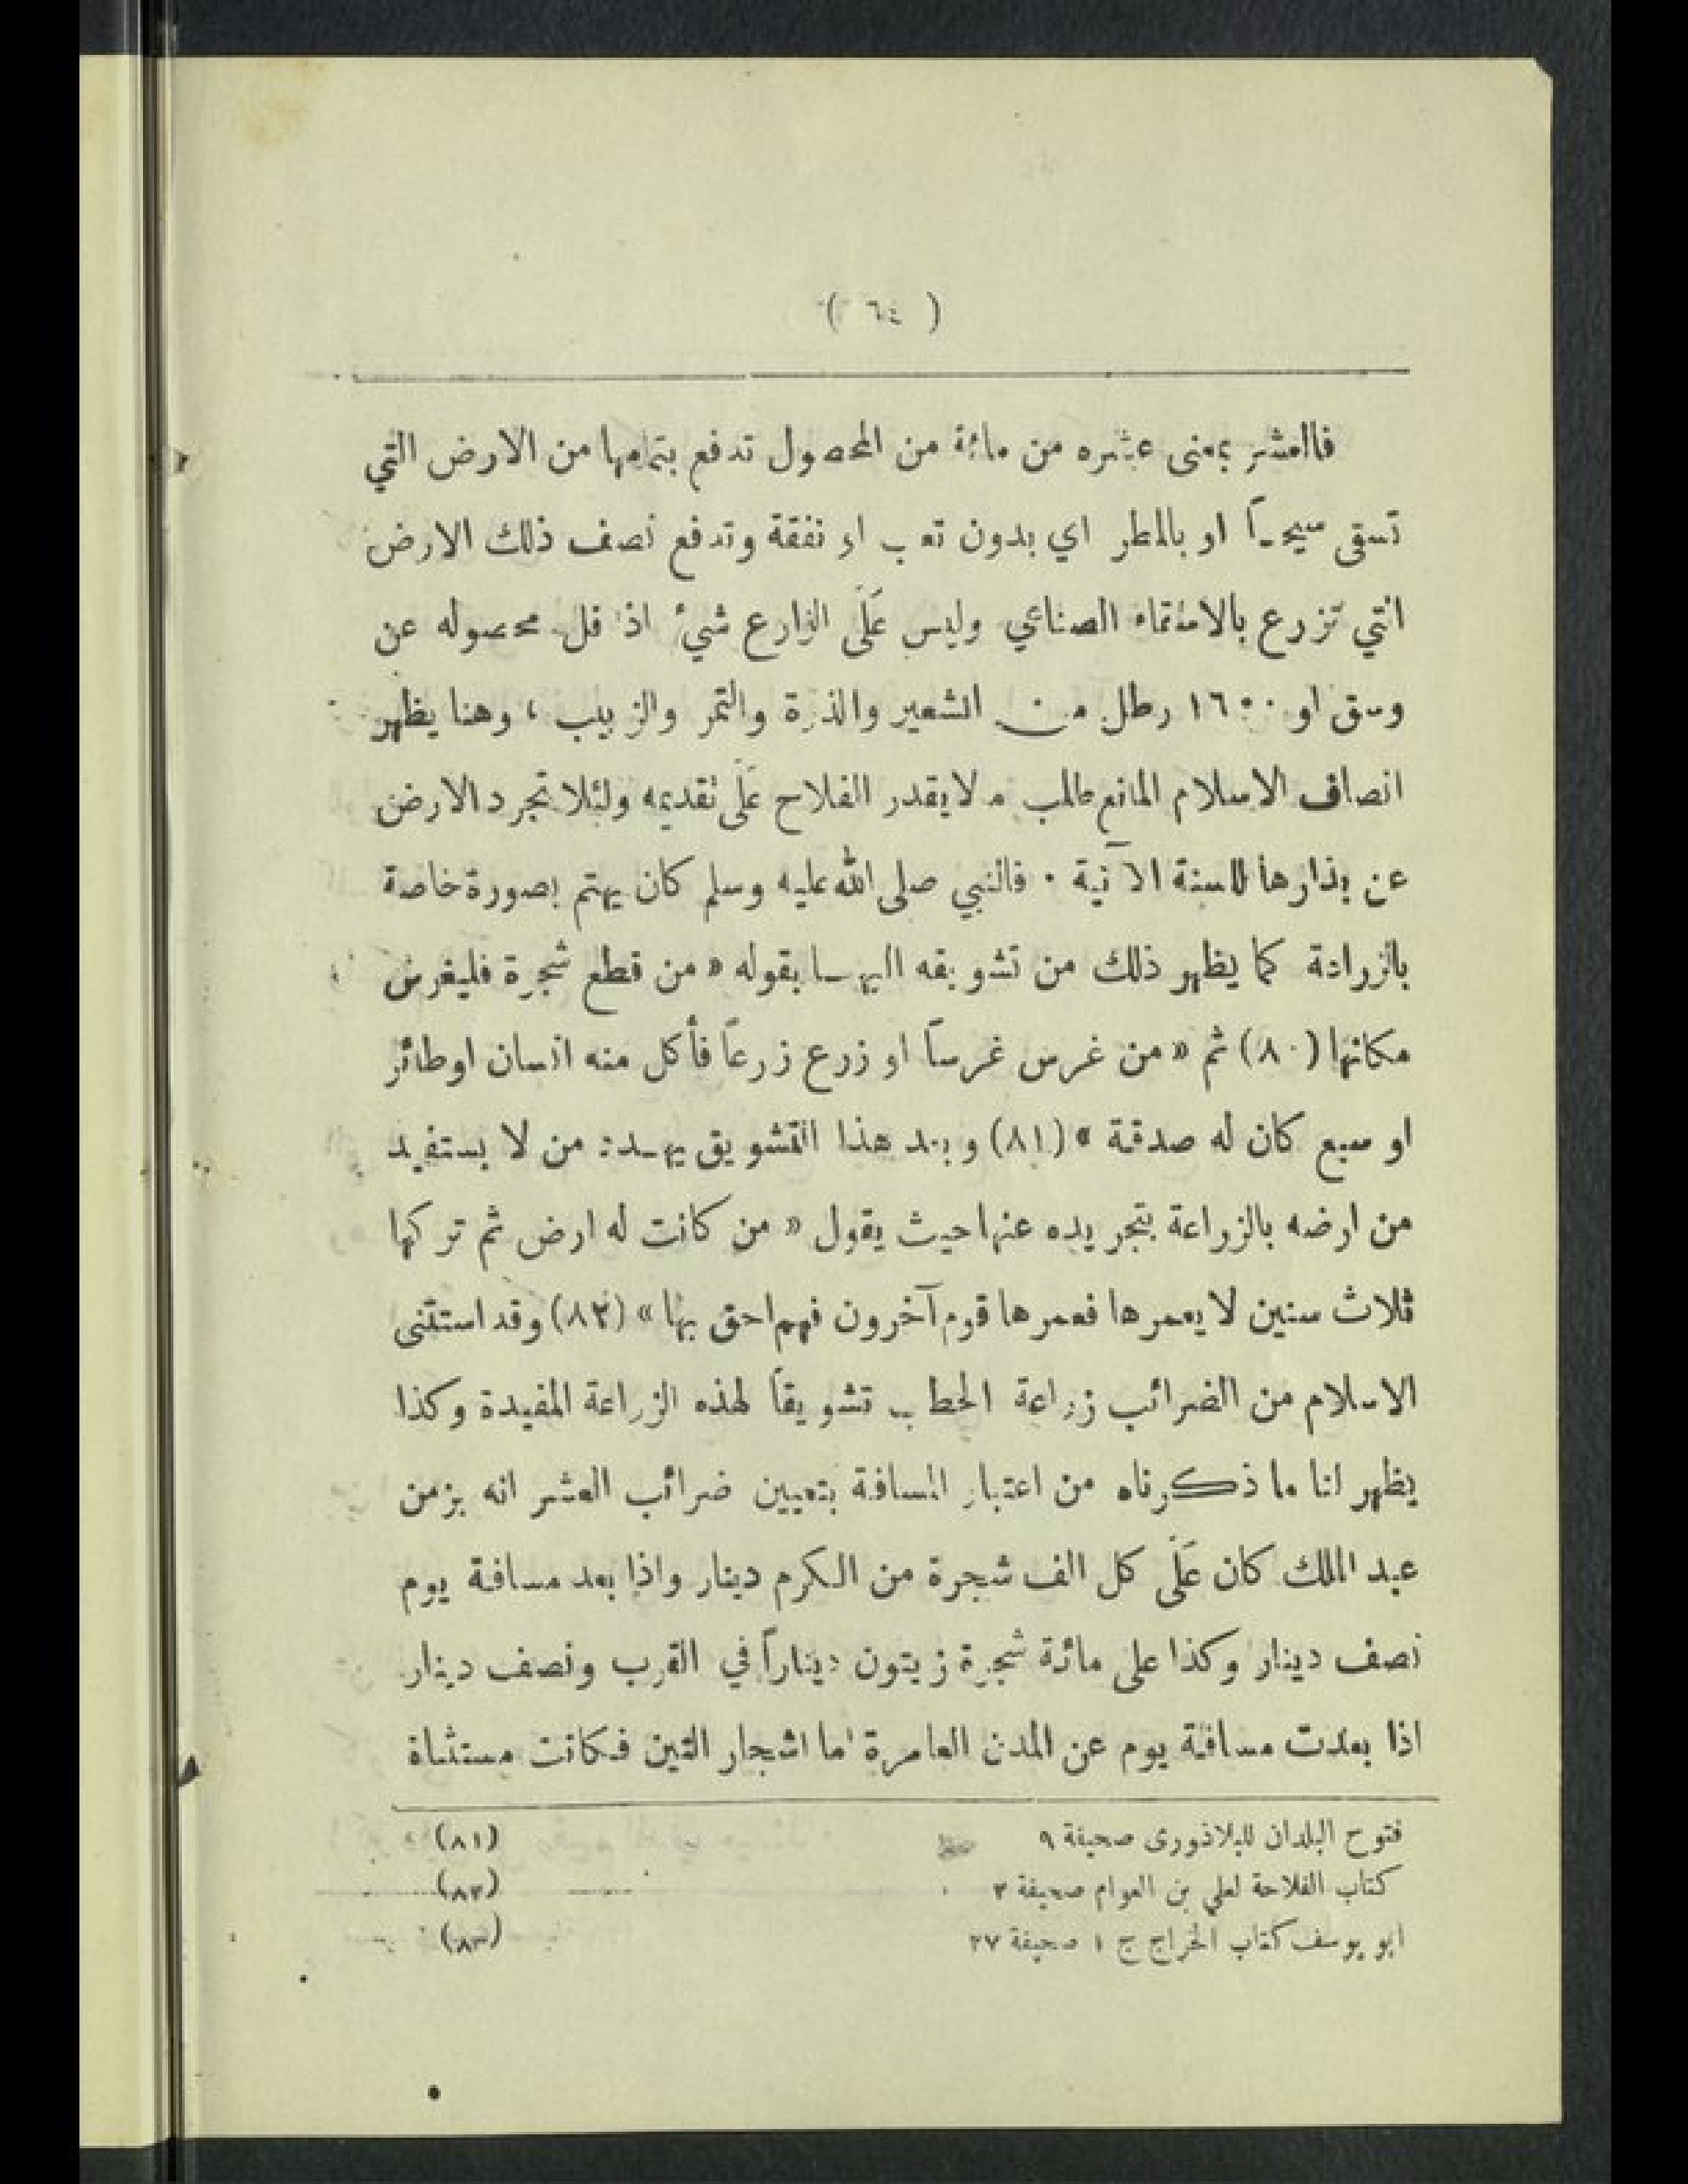 ( ٦٤ )
فالعشر بمعنى عشره من مائة من المحصول تدفع بتمامها من الارض التي
تسقى سيحـاً او بالمطر اي بدون تعب او نفقة وتدفع نصف ذلك الارض
التي تزرع بالاستقاء الصناعي وليس عَلَى الزارع شيءٌ اذا قل محصوله عن
وسق او ١٦٠٠ رطل من الشعير والذرة والتمر والزبيب ، وهنا يظهر
انصاف الاسلام المانع طلب ما لا يقدر الفلاح عَلَى تقديمه ولئلا تجرد الارض
عن بذارها للسنة الآتية ٠ فالنبي صلى الله عليه وسلم كان يهتم بصورة خاصة
بالزراعة كما يظهر ذلك من تشويقه اليهـا بقوله « من قطع شجرة فليغرس
مكانها (٨٠) ثم « من غرس غرساً او زرع زرعاً فأكل منه انسان او طائر
او سبع كان له صدقة » (٨١) وبعد هذا التشويق يهـدد من لا يستفيد
من ارضه بالزراعة بتجريده عنها حيث يقول « من كانت له ارض ثم تركها
ثلاث سنين لا يعمرها فعمرها قوم آخرون فهم احق بها » (٨٢) وقد استثنى
الاسلام من الضرائب زراعة الحطب تشويقاً لهذه الزراعة المفيدة وكذا
يظهر لنا ما ذكرناه من اعتبار المسافة بتعيين ضرائب العشر انه بزمن
عبد الملك كان عَلَى كل الف شجرة من الكرم دينار واذا بعد مسافة يوم
نصف دينار وكذا على مائة شجرة زيتون ديناراً في القرب ونصف دينار
اذا بعدت مسافة يوم عن المدن العامرة اما اشجار التين فكانت مستثناة
فتوح البلدان للبلاذورى صحيفة ٩ (٨١)
كتاب الفلاحة لعلي بن العوام صحيفة ٣ (٨٢)
ابو يوسف كتاب الخراج ج ١ صحيفة ٢٧ (٨٣)